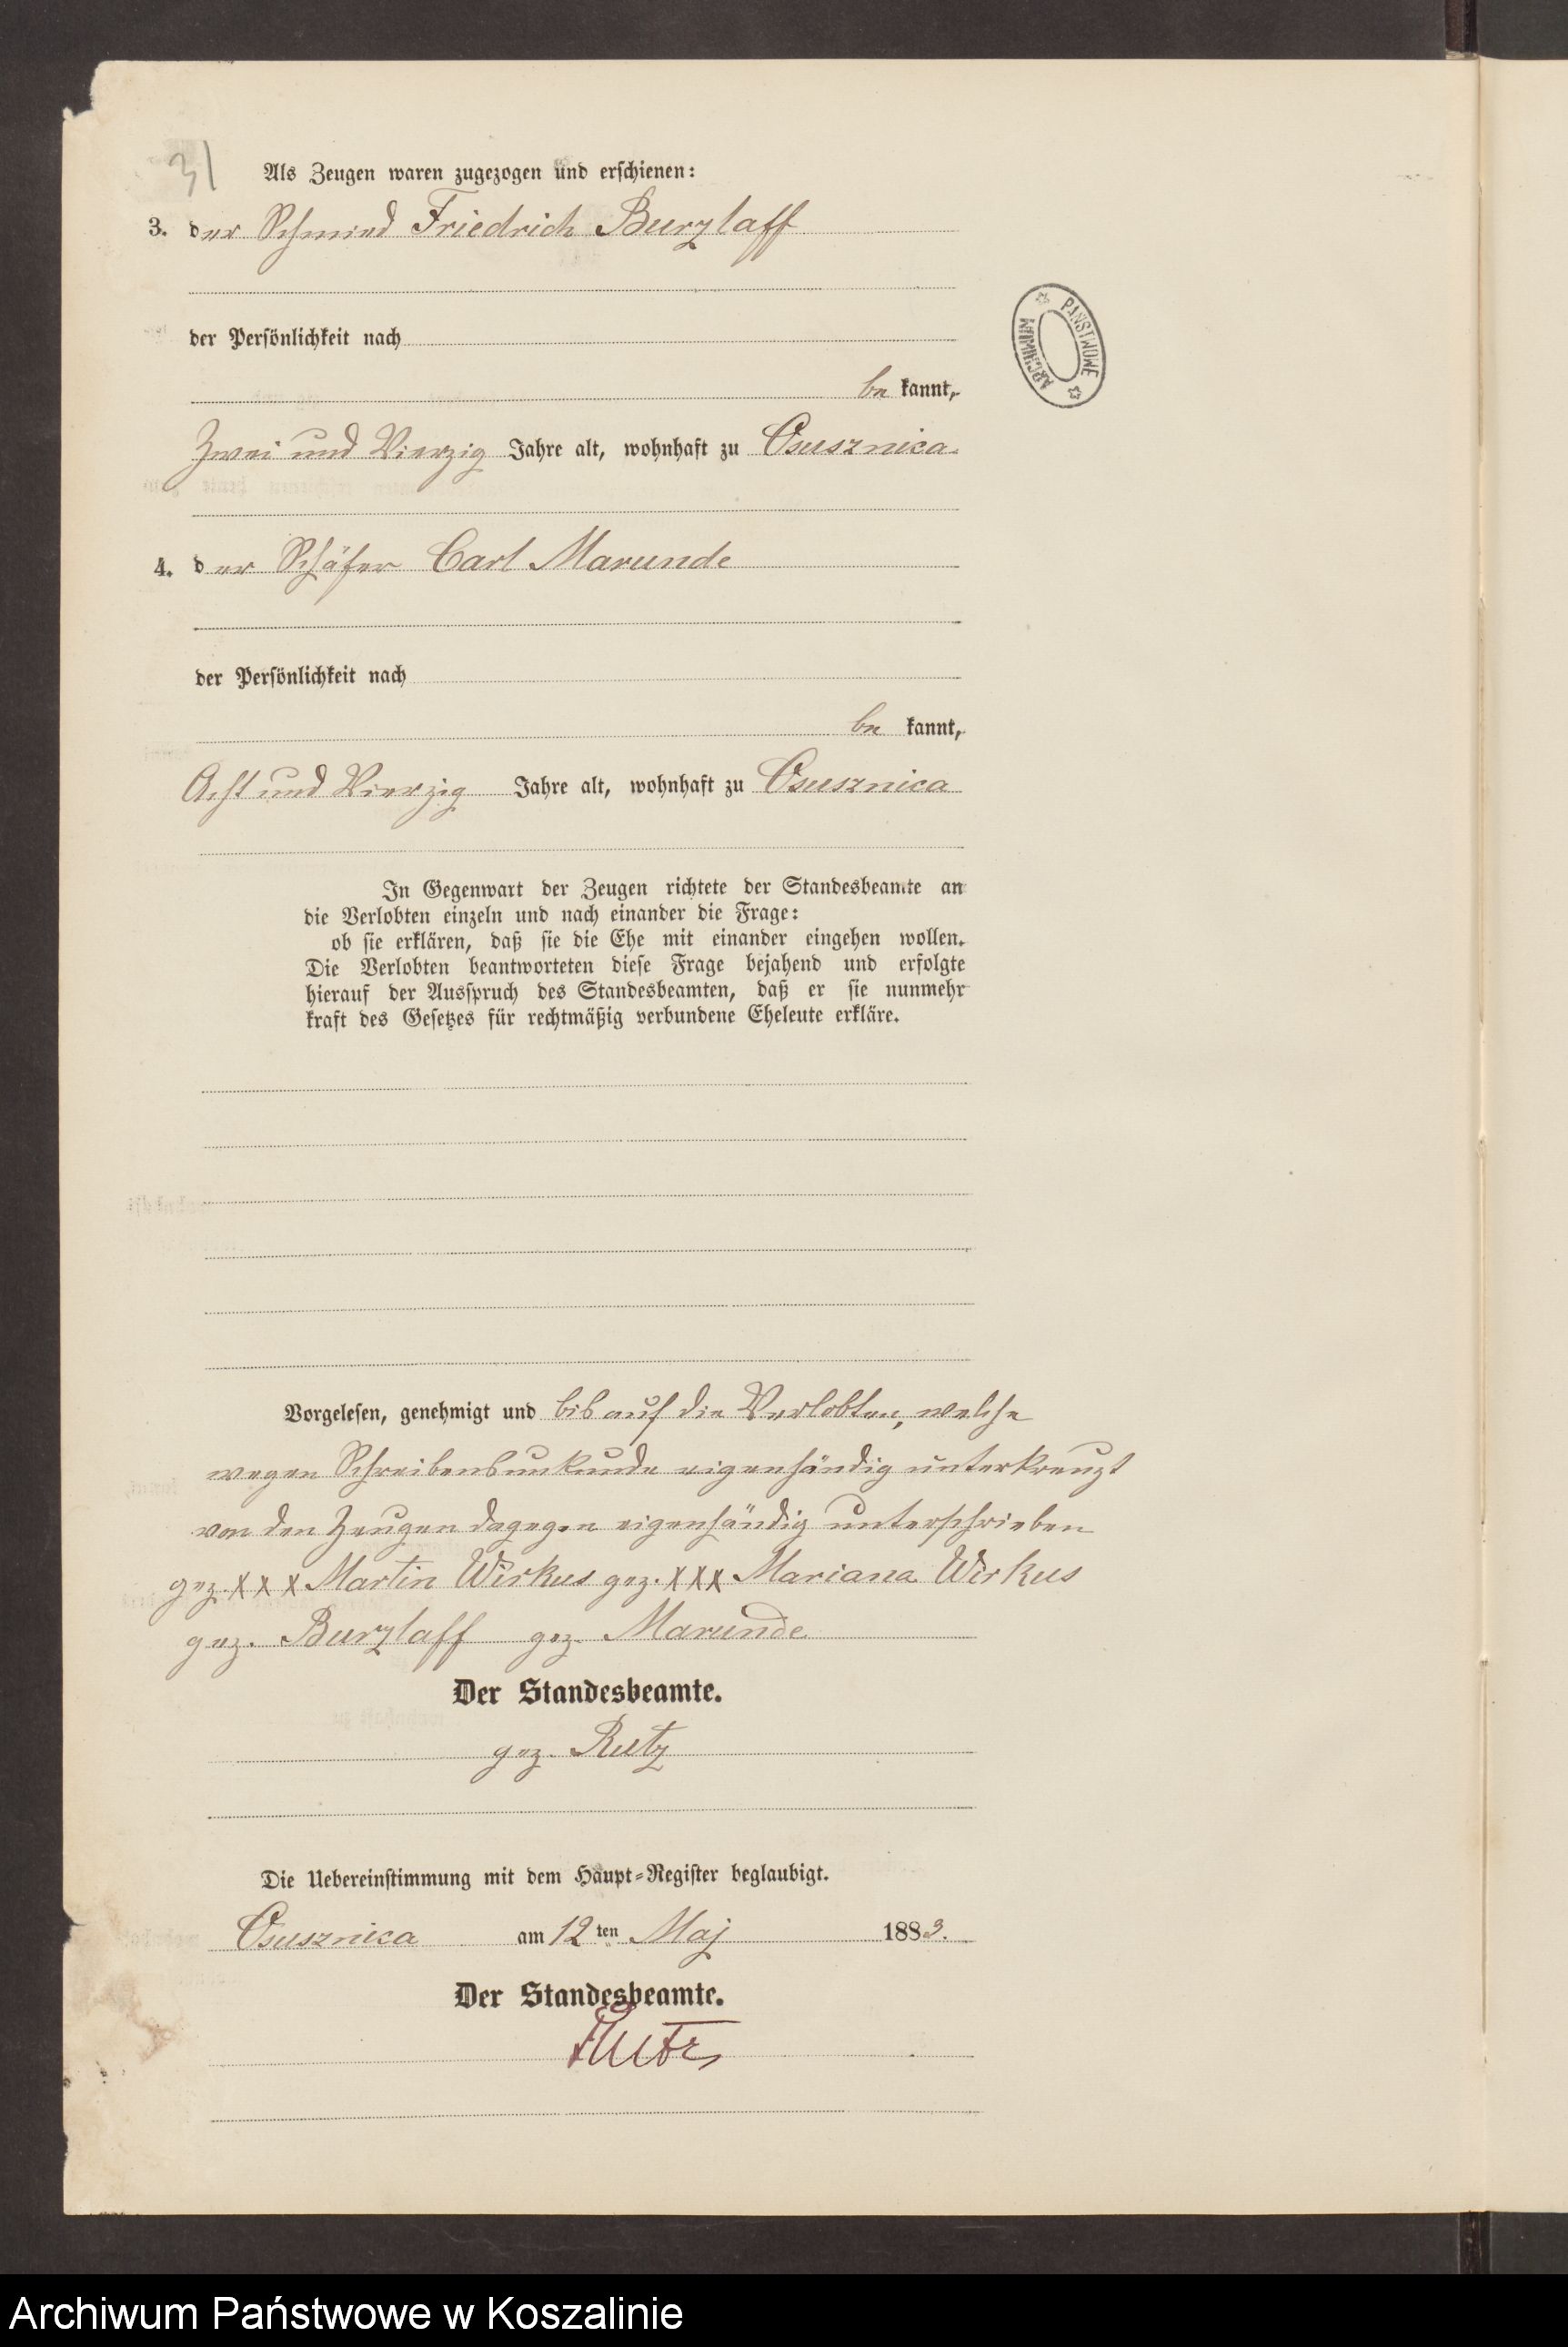 31
Als Zeugen waren zugezogen und erschienen:
3. der Schmied Friedrich Burzlaff
PAŃSTWOWE ARCHIWUM
der Persönlichkeit nach
be kannt,
Zwei und Vierzig Jahre alt, wohnhaft zu Osusznica.
4. der Schäfer Carl Marunde
der Persönlichkeit nach
be kannt,
Acht und Vierzig Jahre alt, wohnhaft zu Osusznica
In Gegenwart der Zeugen richtete der Standesbeamte an
die Verlobten einzeln und nach einander die Frage:
ob sie erklären, daß sie die Ehe mit einander eingehen wollen.
Die Verlobten beantworteten diese Frage bejahend und erfolgte
hierauf der Ausspruch des Standesbeamten, daß er sie nunmehr
kraft des Gesetzes für rechtmäßig verbundene Eheleute erkläre.
Vorgelesen, genehmigt und bis auf die Verlobten, welche
wegen Schreibensunkunde eigenhändig unterkreuzt
von den Zeugen dagegen eigenhändig unterschrieben
gez. XXX Martin Wirkus gez. XXX Mariana Wirkus
gez. Burzlaff gez. Marunde
Der Standesbeamte.
gez. Rutz
Die Uebereinstimmung mit dem Haupt-Register beglaubigt.
Osusznica am 12 ten Maj 1883.
Der Standesbeamte.
Rutz
Archiwum Państwowe w Koszalinie